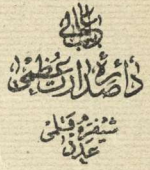 باب عالی
دائرهٔ صدارت عظمی
شیفره قلمی
عدد